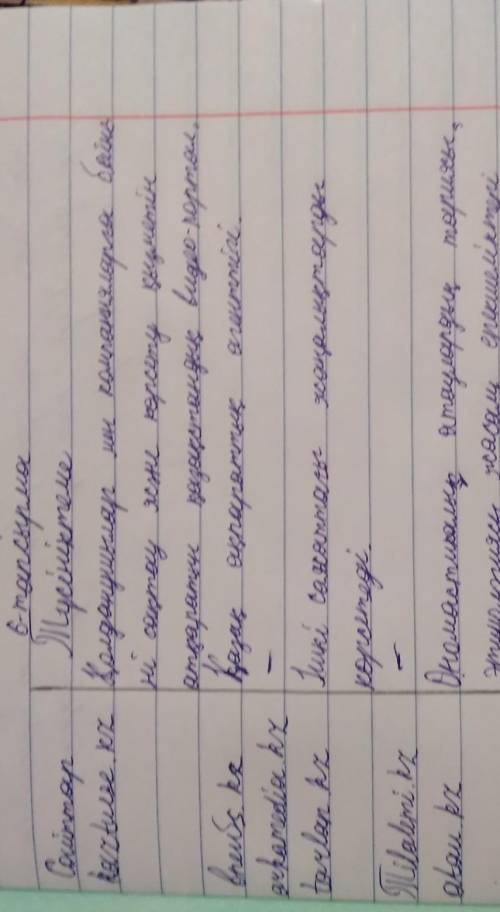 6-тапсырма
Сайттар Түсініктеме
kaztube.kz Қолданушылар мен компанияларға бейне
ні сақтау және көрсету қызметін
атқаратын қазақстандық видео-портал.
bnews.kz Қазақ ақпараттық агенттігі.
avhamedia.kz –
tarlan.kz Ішкі саяхаттағы жаңалықтарды
көрсетеді.
Tilalemi.kz –
atau.kz Ономастикалық атаулардың тарихы,
этимологиясы жасалу ерекшеліктері